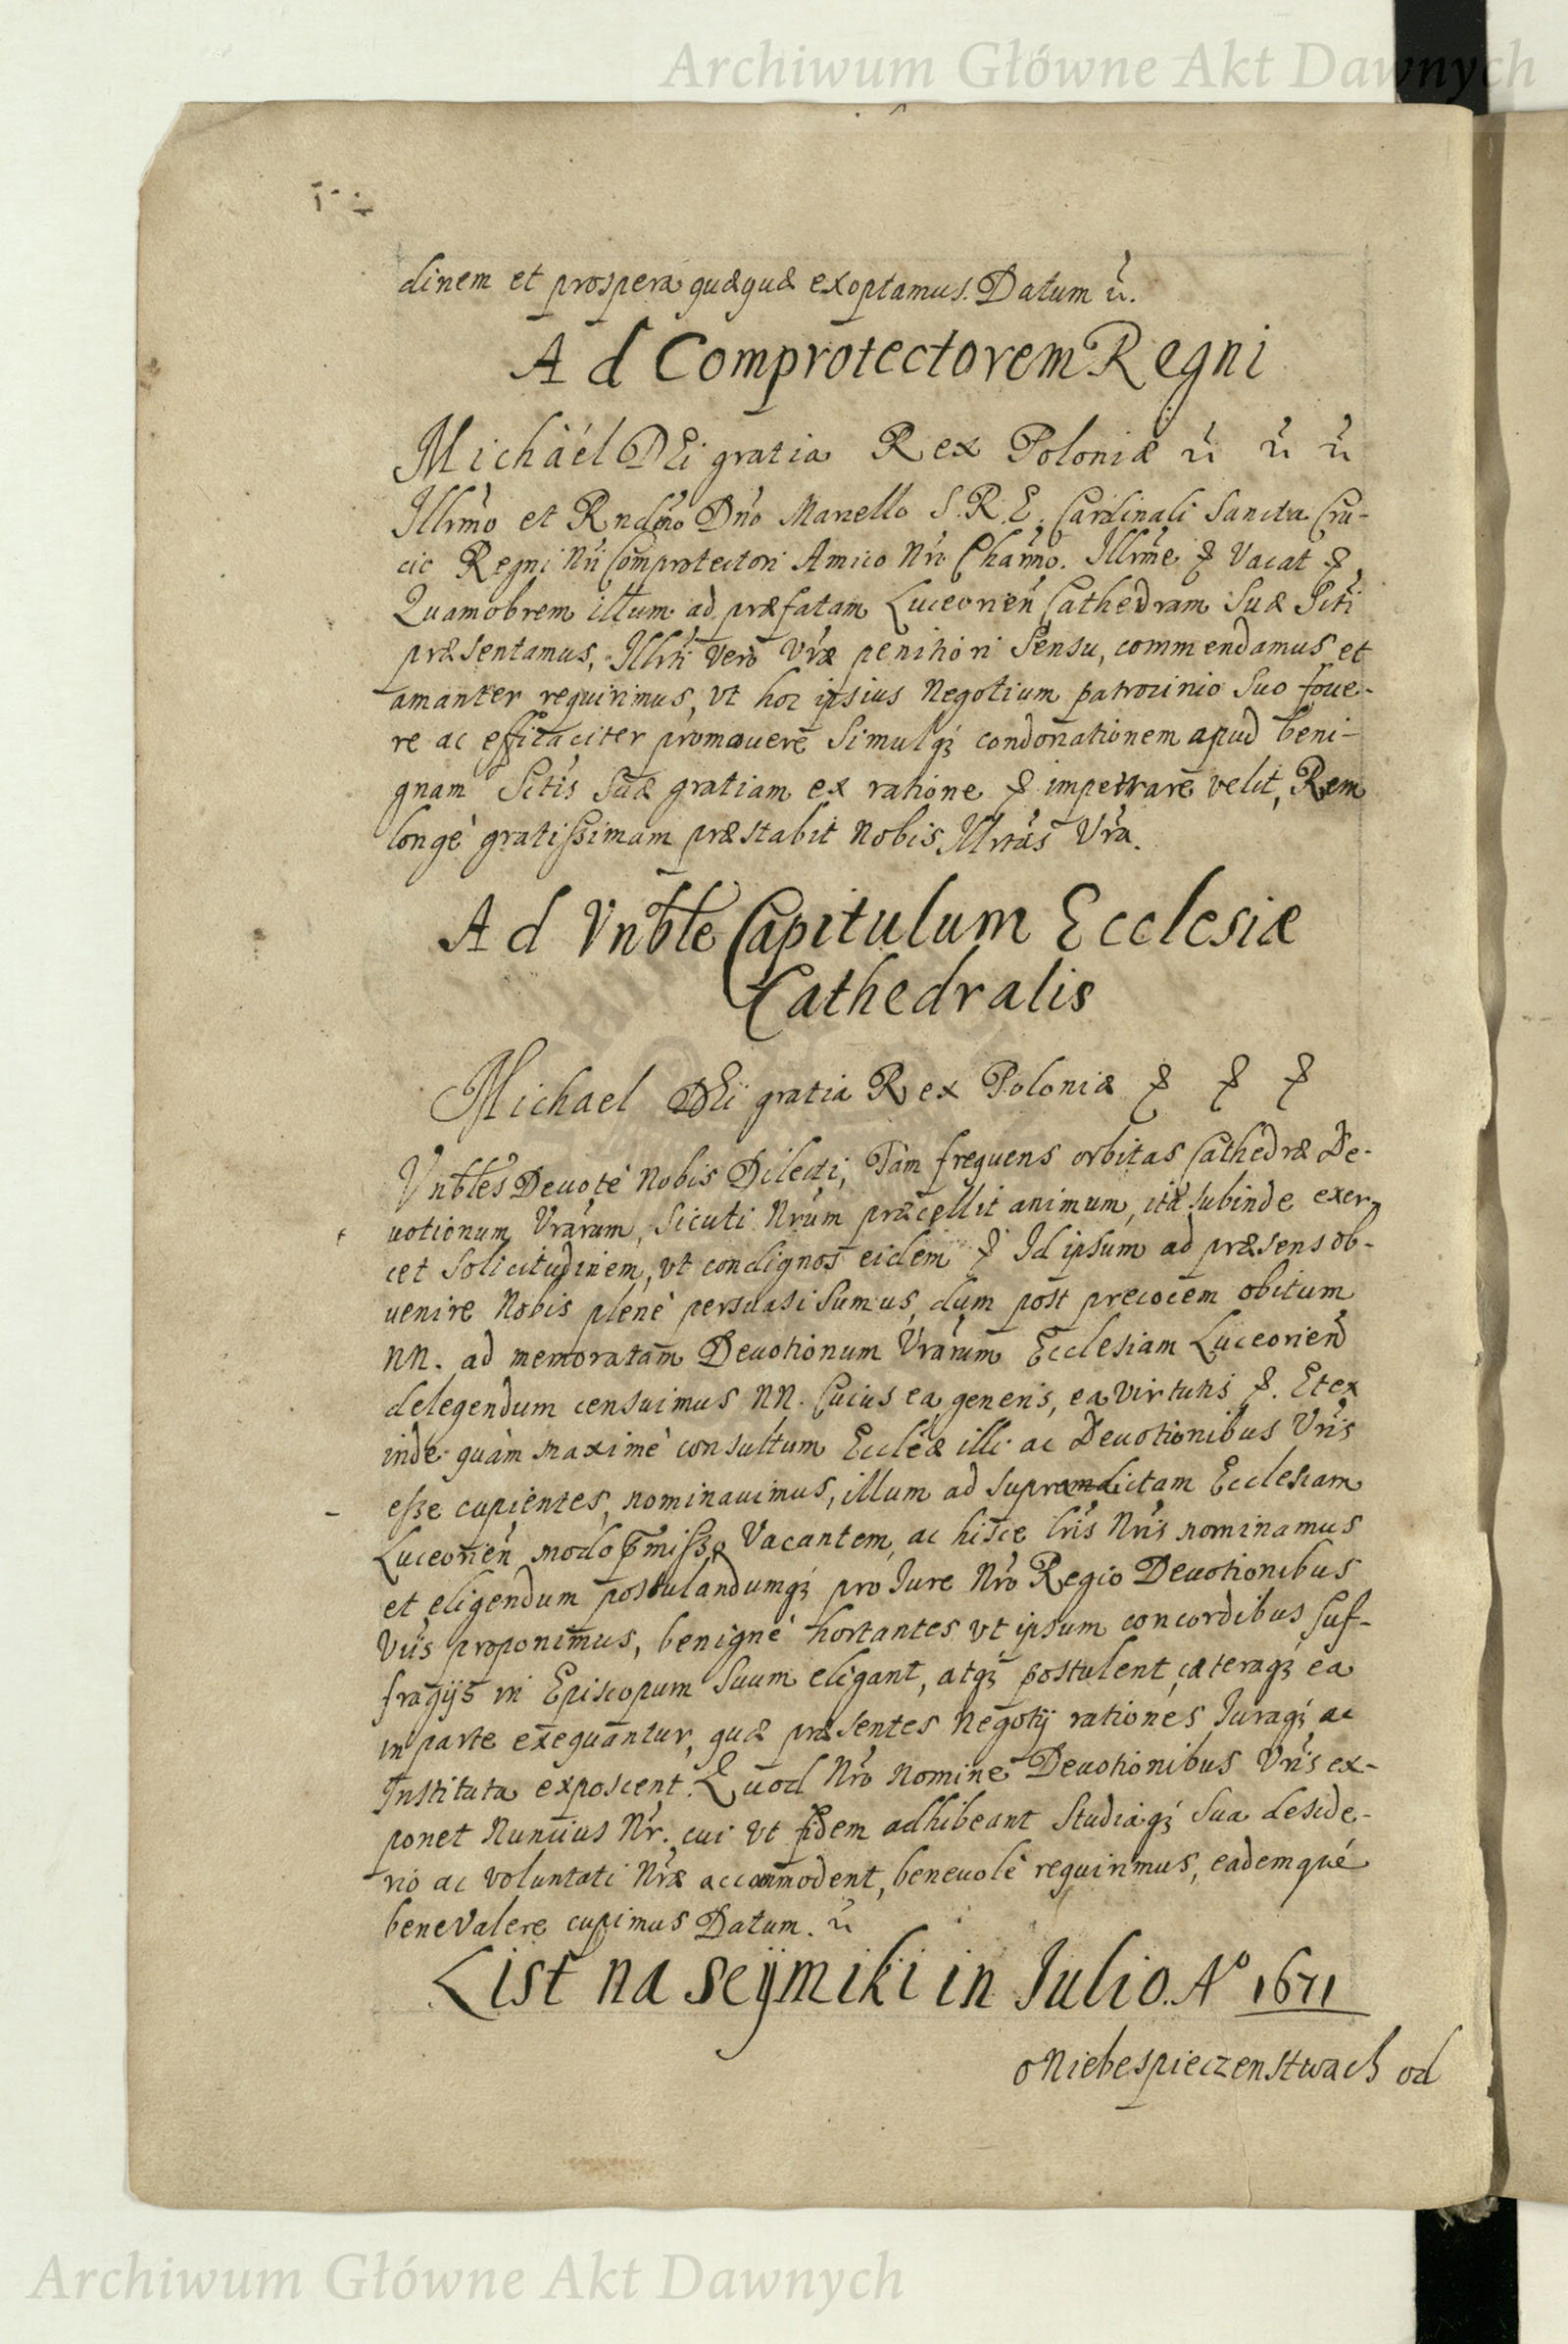 Archiwum Główne Akt Dawnych
dinem et prospera quæquæ exoptamus. Datum &c.
Ad Comprotectorem Regni
Michäél DEi gratia Rex Poloniæ &c &c &c
Illrmo et Rndmo Dno Marello S. R. E. Cardinali Sancta Cru-
cic Regni Nri Comprotectori Amico Nro Charmo. Illrme &c Vacat &c,
Quamobrem illum ad præfatam Luceorien Cathedram Suæ Scti
præsentamus, Illrti vero Vræ penitiori Sensu, commendamus et
amanter requirimus, vt hoc ipsius Negotium patrocinio suo foue-
re ac efficaciter promouere simulqz condonationem apud beni-
gnam Sctis Suæ gratiam ex ratione &c impetrare velit, Rem
longè gratissimam præstabit Nobis Illrtas Vra.
Ad Vnble Capitulum Ecclesiæ
Cathedralis
Michael DEi gratia Rex Poloniæ &c &c &c
Vnbles Deuotè Nobis Dilecti, Tàm frequens orbitas Cathedræ De-
uotionum Vrarum, sicuti Nrum præcellit animum, ità subinde exer-
cet solicitudinem, vt condignos eidem &c Id ipsum ad præsens ob-
uenire Nobis plenè persuasi sumus, dum post precocem obitum
NN. ad memoratam Deuotionum Vrarum Ecclesiam Luceorien
delegendum censuimus NN. Cuius ea generis, ea virtutis &c. Et ex
inde quàm maximè consultum Eccleæ illi ac Deuotionibus Vris
esse cupientes, nominauimus, illum ad supramdictam Ecclesiam
Luceorien modo pmisso Vacantem, ac hisce lris Nris nominamus
et eligendum postulandumqz pro Iure Nro Regio Deuotionibus
Vris proponimus, benignè hortantes vt ipsum concordibus suf-
fragijs in Episcopum suum eligant, atqz postulent, cæteraqz ea
in parte exequantur, quæ præsentes Negotij rationes Iuraqz ac
Instituta exposcent. Quod Nro nomine Deuotionibus Vris ex-
ponet Nuncius Nr. cui vt fidem adhibeant Studiaqz sua deside-
rio ac voluntati Nræ accommodent, beneuolè requirimus, eademqué
bene Valere cupimus Datum. &c
List na seijmiki in Julio. Aº 1671
o Niebespieczenstwach od
Archiwum Główne Akt Dawnych